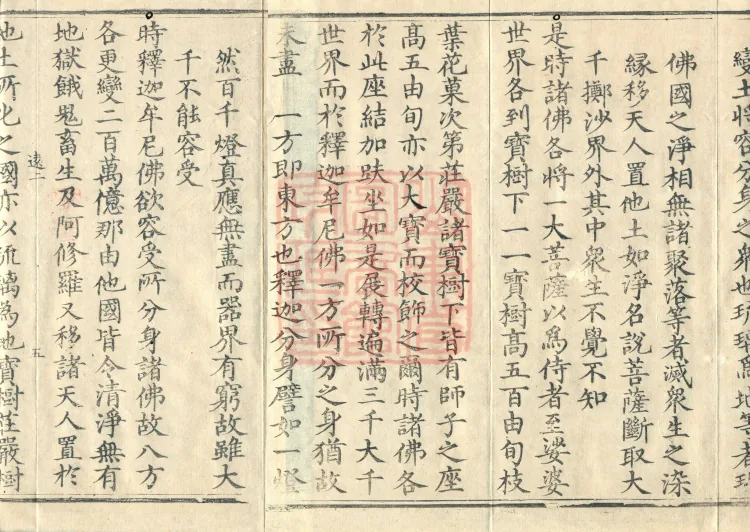 變土將容分身之衆也琉璃爲地等者
佛國之淨相無諸聚落等者滅衆生之染
緣移天人置他土如淨名說菩薩斷取大
千擲沙界外其中衆生不覺不知
是時諸佛各將一大菩薩以爲侍者至娑婆
世界各到寶樹下一一寶樹高五百由旬枝
葉花菓次第莊嚴諸寶樹下皆有師子之座
髙五由旬亦以大寶而校飾之爾時諸佛各
於此座結加趺坐如是展轉遍滿三千大千
世界而於釋迦牟尼佛一方所分之身猶故
未盡　一方即東方也釋迦分身譬如一燈
然百千燈真應無盡而器界有窮故雖大
千不能容受
時釋迦牟尼佛欲容受所分身諸佛故八方
各更變二百萬億那由他國皆令清淨無有
地獄餓鬼畜生及阿修羅又移諸天人置於
遠二　五
他土所化之國亦以琉璃爲地寶樹莊嚴樹